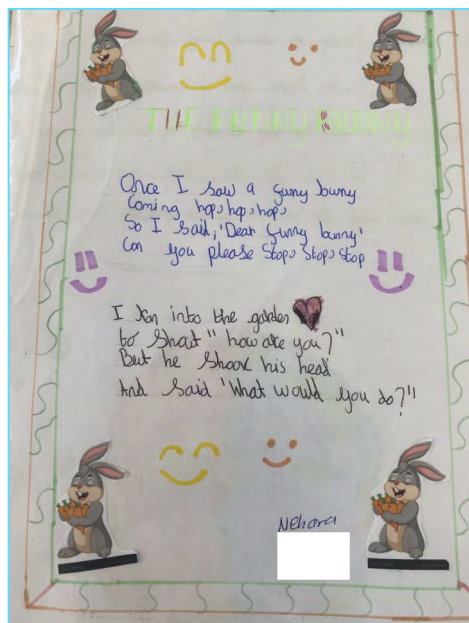 THE FUNNY BUNNY
Once I saw a funny bunny
Coming hop, hop, hop,
So I said, 'Dear funny bunny'
Can you please stop, stop, stop
I ran into the garden
to shout "how are you?"
But he shook his head
And said 'What would you do?"
Nehara